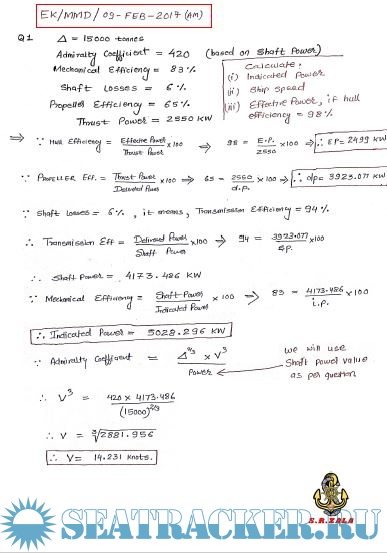 EK/MMD/09-FEB-2017 (AM)
Q1 Δ = 15000 tonnes
Admiralty Coefficient = 420 (based on Shaft Power)
Mechanical Efficiency = 83%
Shaft Losses = 6%
Propeller Efficiency = 65%
Thrust Power = 2550 KW
Calculate:
(i) Indicated Power
(ii) Ship speed
(iii) Effective Power, if hull efficiency = 98%
⇒ ∵ Hull Efficiency = Effective Power/Thrust Power × 100 ⇒ 98 = E.P./2550 × 100 ⇒ ∴ EP = 2499 KW
∵ PROPELLER Eff. = Thrust Power/Delivered Power × 100 ⇒ 65 = 2550/d.p. × 100 ⇒ ∴ dp = 3923.077 KW
∵ Shaft Losses = 6%, it means, Transmission Efficiency = 94%
∴ Transmission Eff = Delivered Power/Shaft Power × 100 ⇒ 94 = 3923.077/S.p. × 100
∴ Shaft Power = 4173.486 KW
∵ Mechanical Efficiency = Shaft Power/Indicated Power × 100 ⇒ 83 = 4173.486/i.p. × 100
∴ Indicated Power = 5028.296 KW
∵ Admiralty Coefficient = Δ^2/3 × V^3/Power
we will use
Shaft Power value
as per question
∴ V^3 = 420 × 4173.486/(15000)^2/3
∴ V = ∛2881.956
∴ V = 14.231 knots.
S.R.ZALA
SEATRACKER.RU